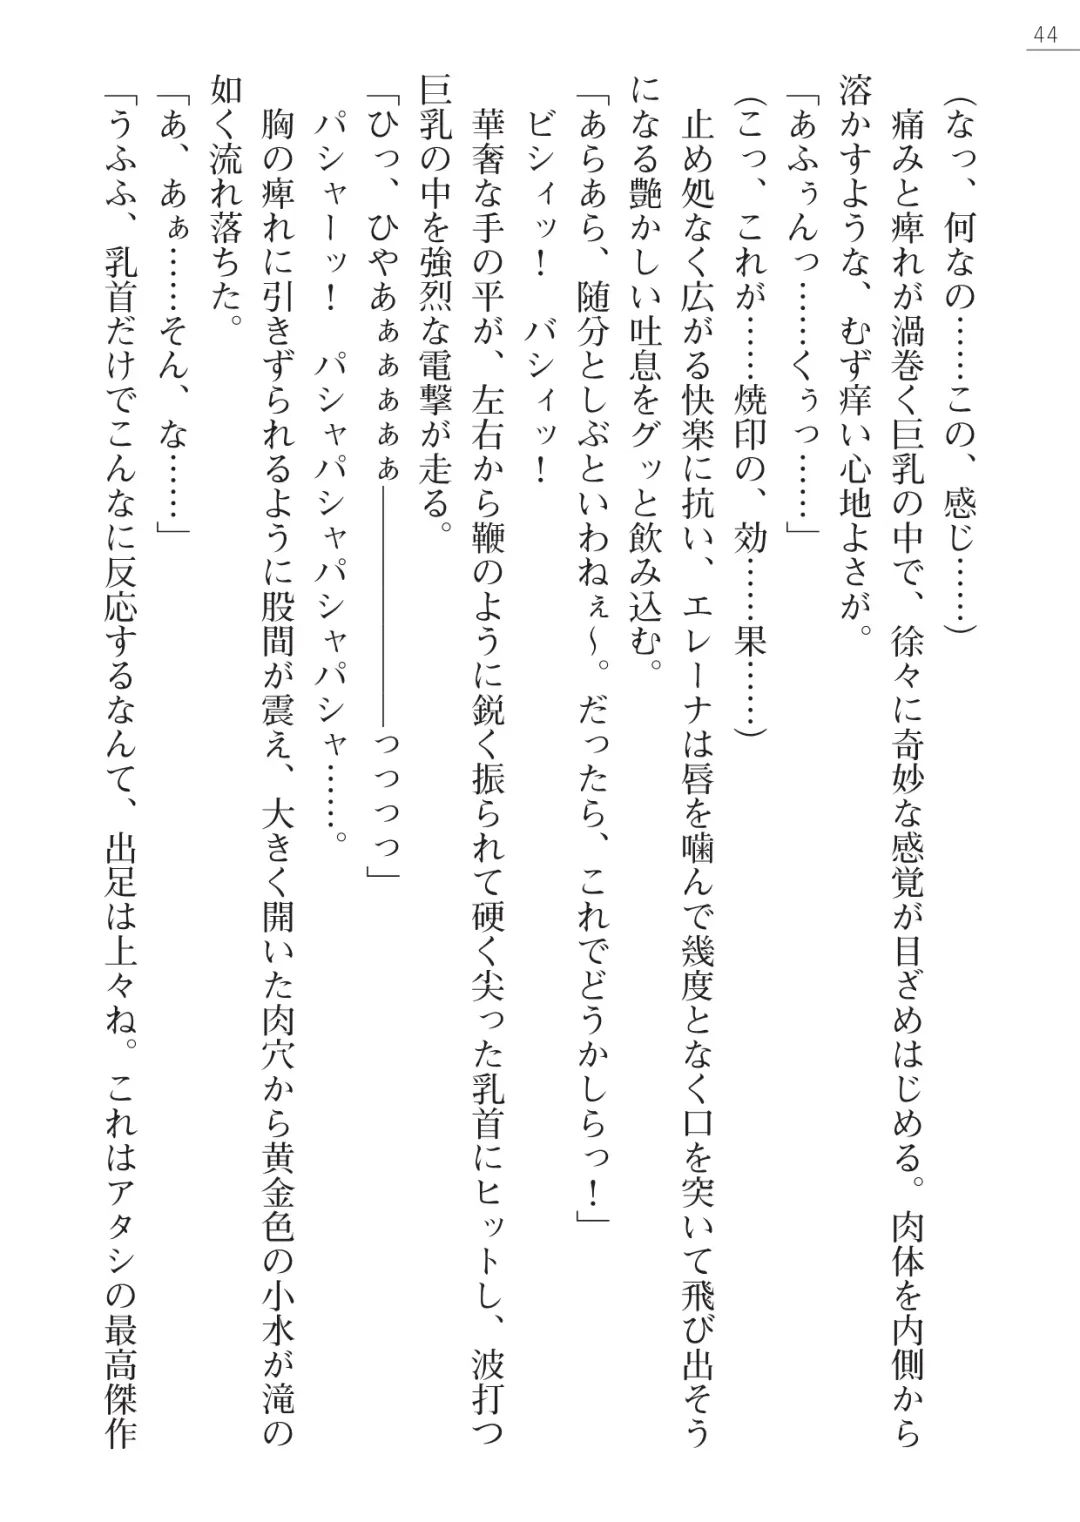 44
（なっ、何なの……この、感じ……）
　痛みと痺れが渦巻く巨乳の中で、徐々に奇妙な感覚が目ざめはじめる。肉体を内側から
溶かすような、むず痒い心地よさが。
「あふぅんっ……くぅっ……」
（こっ、これが……焼印の、効……果……）
　止め処なく広がる快楽に抗い、エレーナは唇を噛んで幾度となく口を突いて飛び出そう
になる艶かしい吐息をグッと飲み込む。
「あらあら、随分としぶといわねぇ～。だったら、これでどうかしらっ！」
　ビシィッ！　バシィッ！
　華奢な手の平が、左右から鞭のように鋭く振られて硬く尖った乳首にヒットし、波打つ
巨乳の中を強烈な電撃が走る。
「ひっ、ひやあぁぁぁぁぁ――――――――っっっっ」
　パシャーッ！　パシャパシャパシャパシャ……。
　胸の痺れに引きずられるように股間が震え、大きく開いた肉穴から黄金色の小水が滝の
如く流れ落ちた。
「あ、あぁ……そん、な……」
「うふふ、乳首だけでこんなに反応するなんて、出足は上々ね。これはアタシの最高傑作